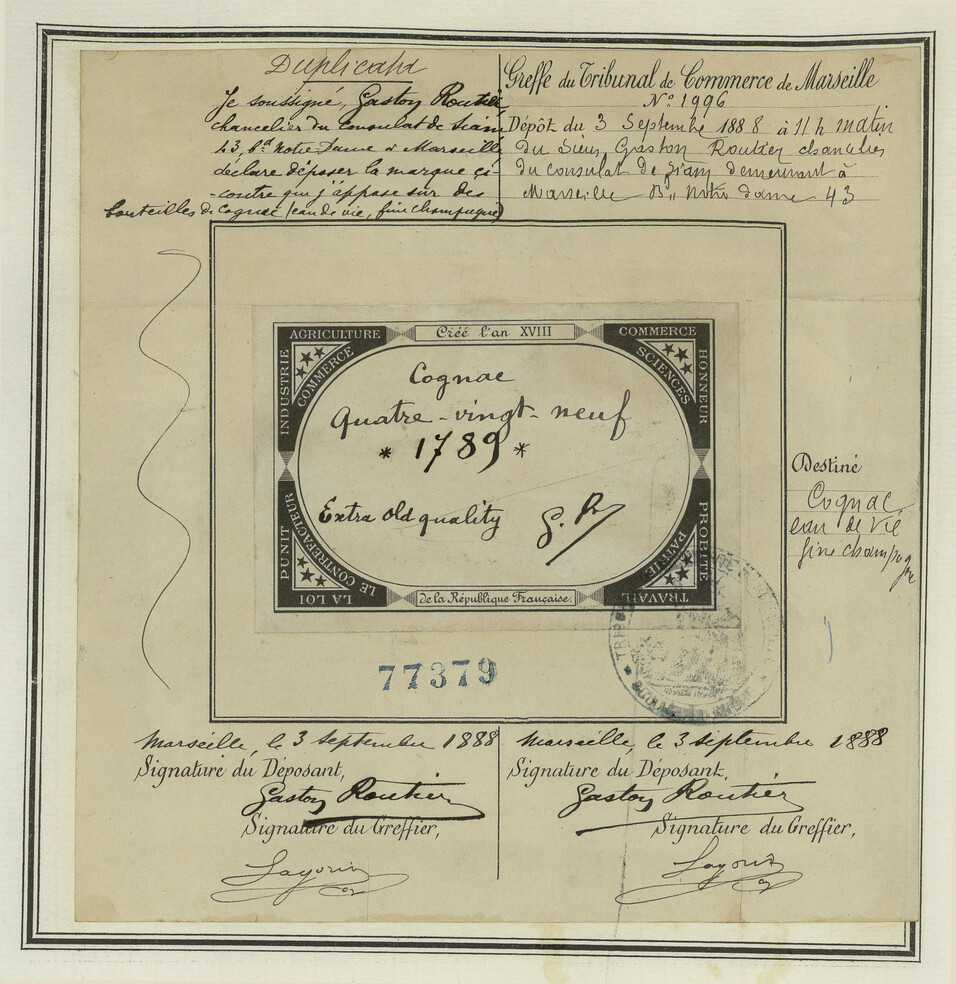 Duplicata
Je soussigné, Gaston Routier
chancelier du Consulat de Siam
43, Bd Notre Dame à Marseille
déclare déposer la marque ci-
-contre que j'appose sur des
bouteilles de Cognac (eau de vie, fine champagne)
Greffe du Tribunal de Commerce de Marseille
No. 1996
Dépôt du 3 Septembre 1888 à 11 h matin
Du Sieur Gaston Routier chancelier
du consulat de Siam demeurant à
Marseille Bd Notre dame 43
AGRICULTURE
Créé l'an XVIII
COMMERCE
INDUSTRIE
COMMERCE
SCIENCES
HONNEUR
Cognac
Quatre-vingt-neuf
* 1789 *
Extra old quality
G. R.
PUNIT
LE CONTREFACTEUR
PATRIE
PROBITE
LA LOI
de la République Française.
TRAVAIL
Destiné
Cognac
eau de vie
fine champagne
77379
Marseille, le 3 septembre 1888
Signature du Déposant,
Gaston Routier
Signature du Greffier,
Marseille, le 3 septembre 1888
Signature du Déposant,
Gaston Routier
Signature du Greffier,